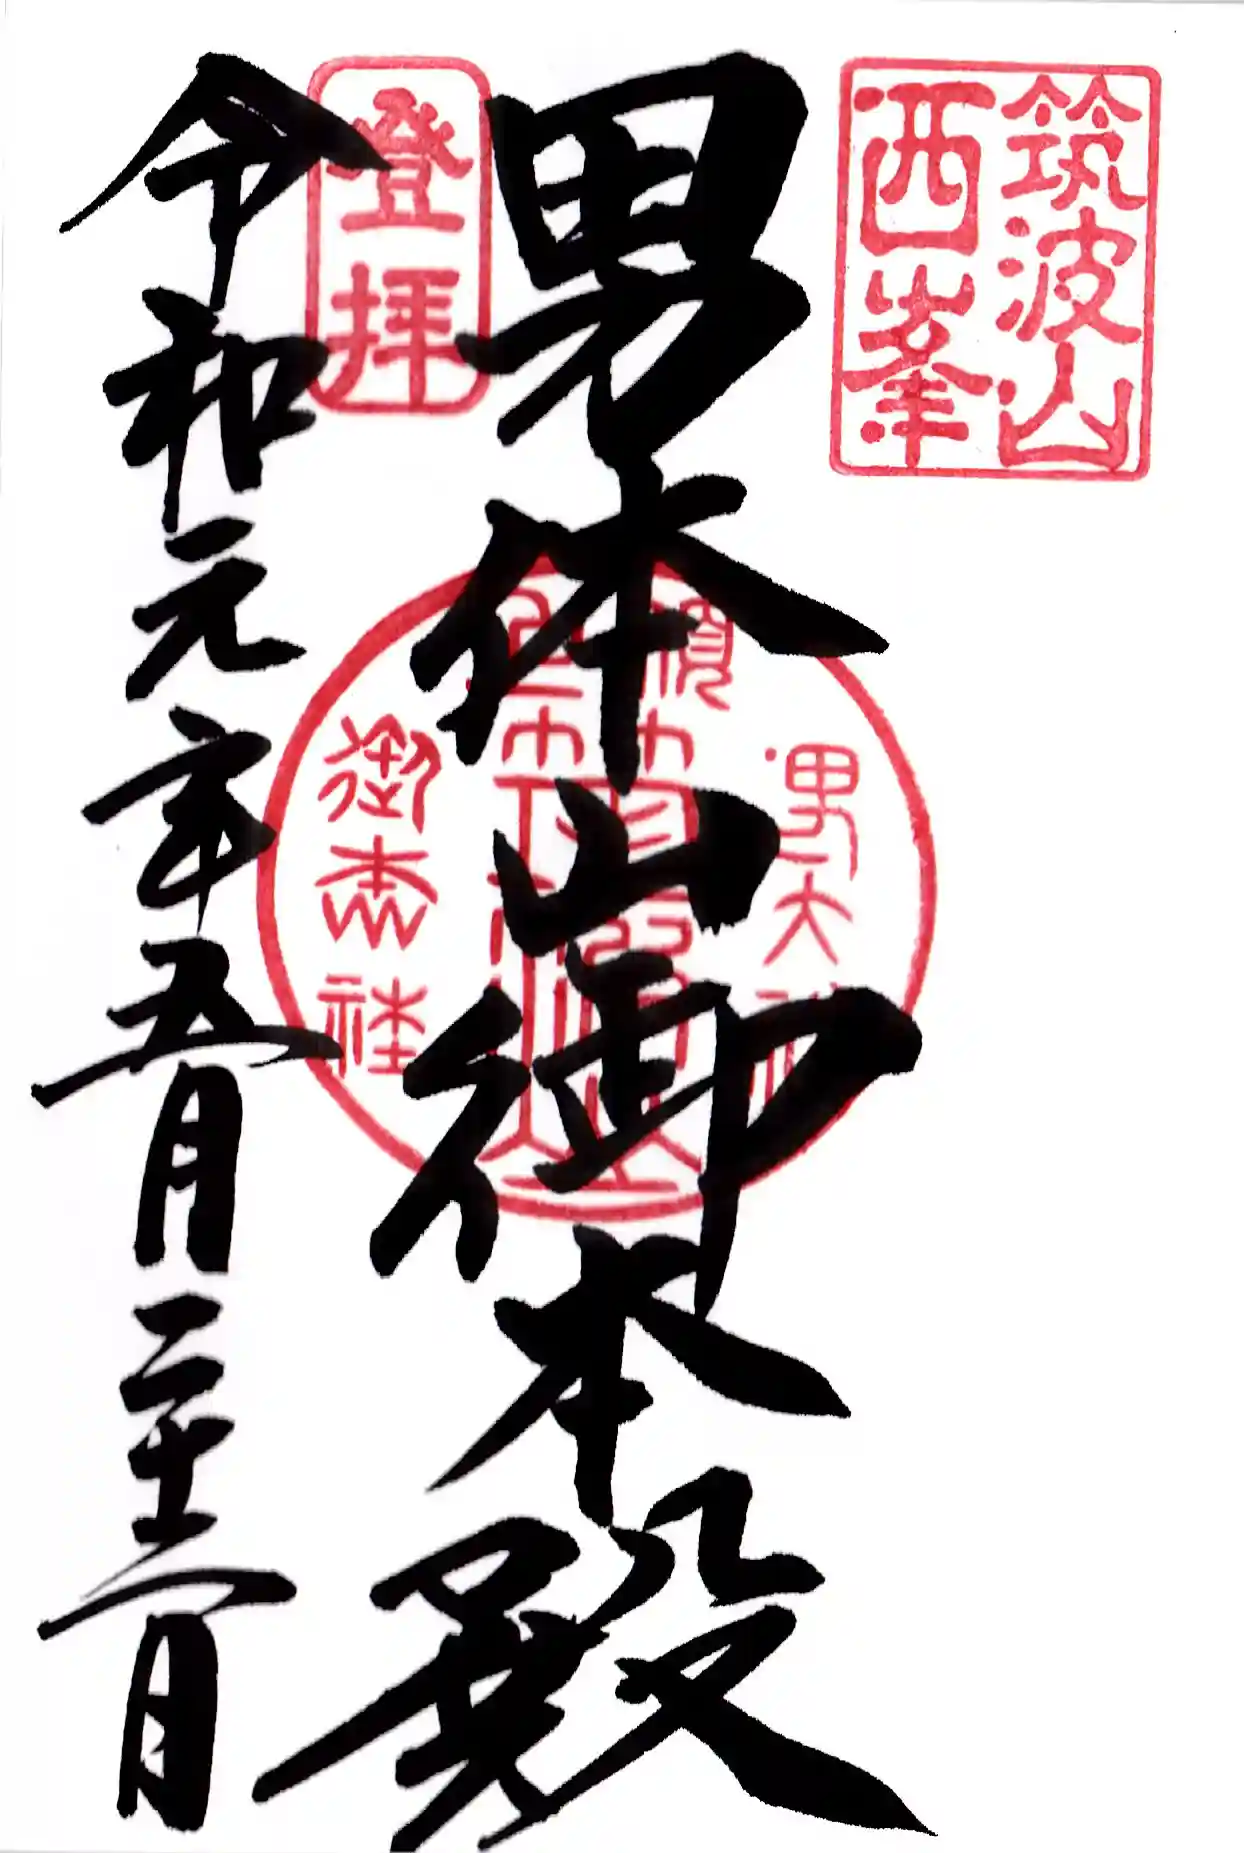 筑波山
西峯
男体山御本殿
男大神
御本社
登拝
令和元年五月二十二日